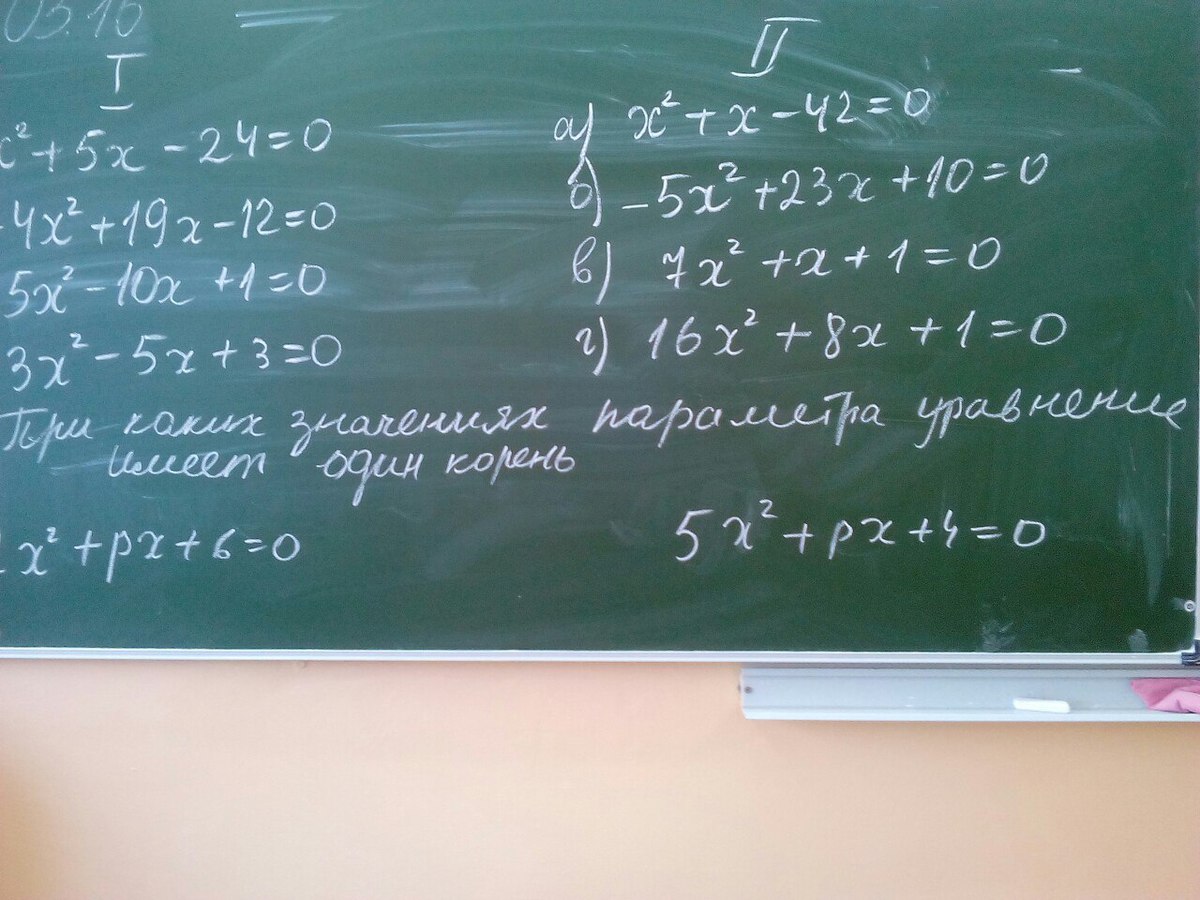 05.10
I
x² + 5x - 24 = 0
-4x² + 19x - 12 = 0
5x² - 10x + 1 = 0
3x² - 5x + 3 = 0
II
а) x² + x - 42 = 0
б) -5x² + 23x + 10 = 0
в) 7x² + x + 1 = 0
г) 16x² + 8x + 1 = 0
При каких значениях параметра уравнение
имеет один корень
x² + px + 6 = 0
5x² + px + 4 = 0